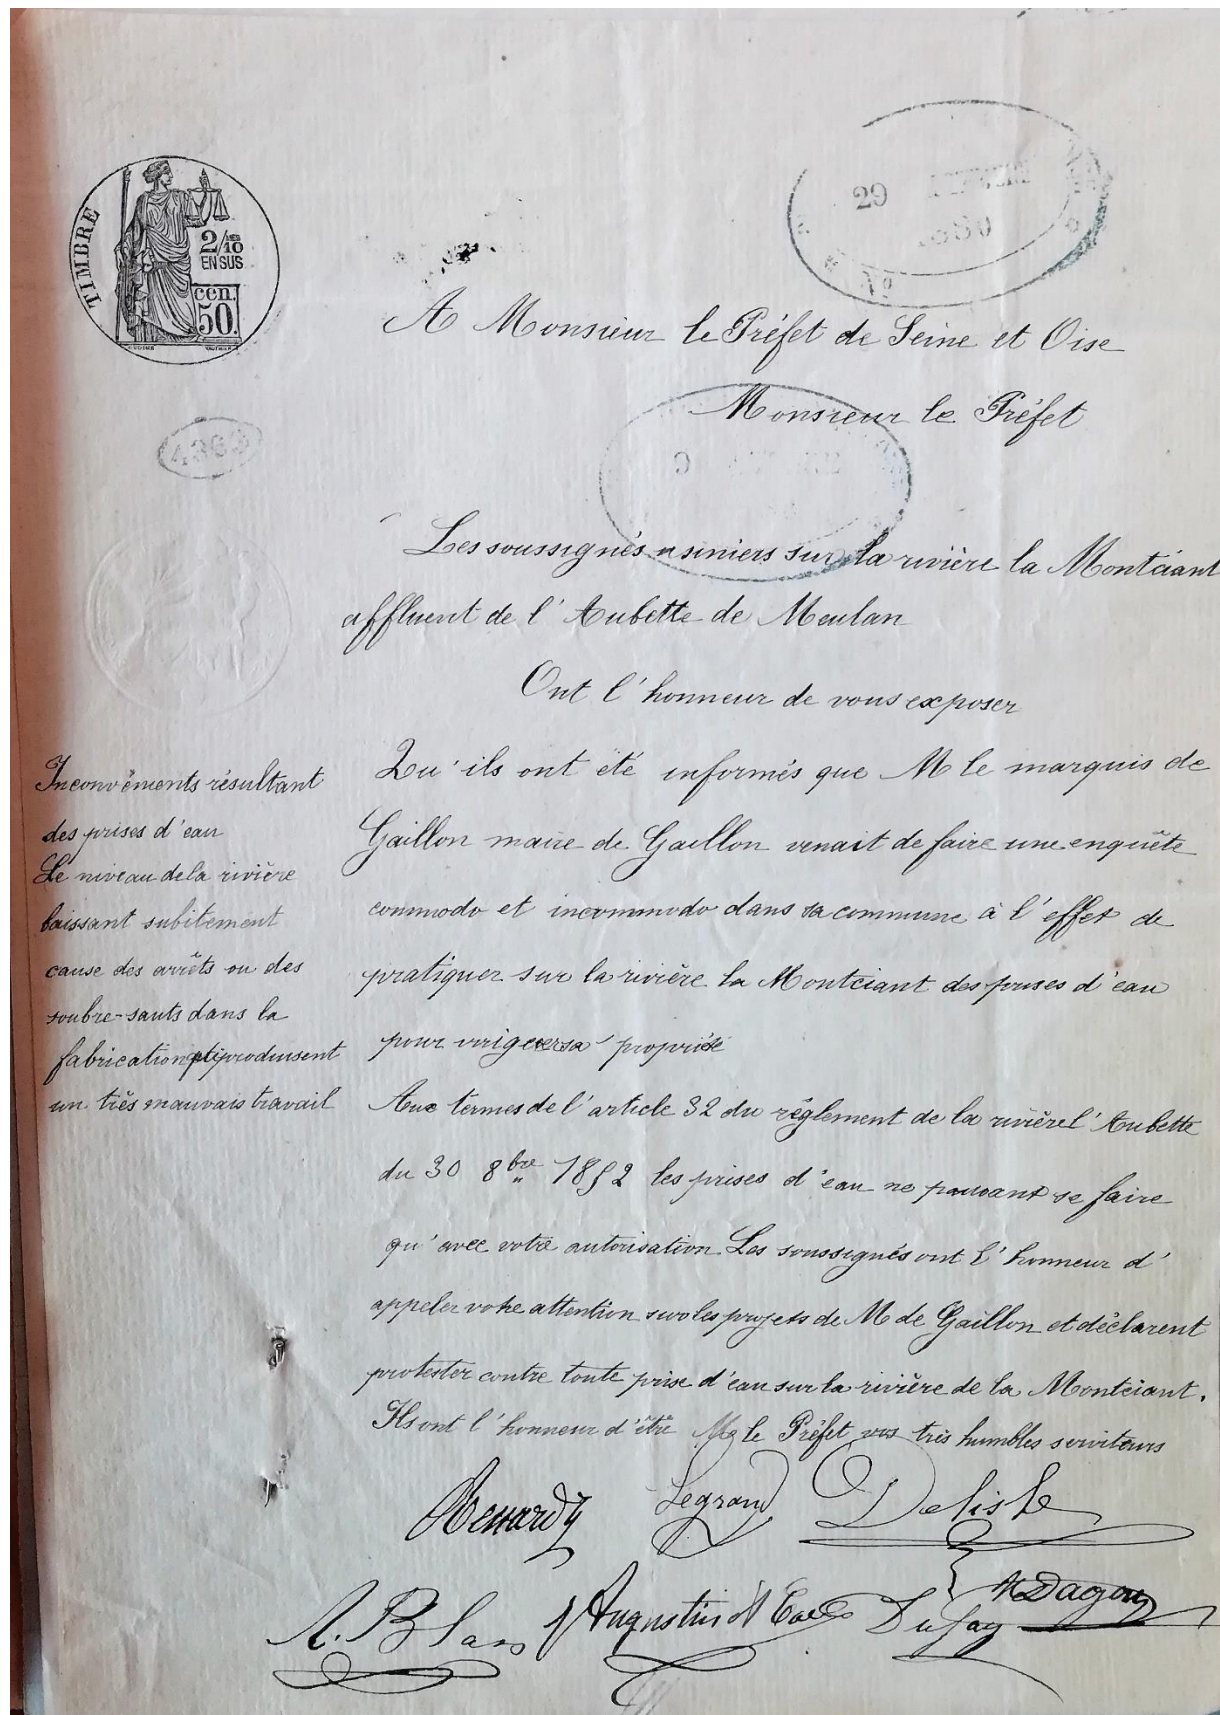 TIMBRE
2/10 EN SUS
cen. 50.
29
1880
No
4363
A Monsieur le Préfet de Seine et Oise
Monsieur le Préfet
Les soussignés usiniers sur la rivière la Montciant
affluent de l'Aubette de Meulan
Ont l'honneur de vous exposer
Qu'ils ont été informés que M le marquis de
Gaillon maire de Gaillon venait de faire une enquête
commodo et incommodo dans sa commune à l'effet de
pratiquer sur la rivière la Montciant des prises d'eau
pour sa propriété
Aux termes de l'article 32 du règlement de la rivière l'Aubette
du 30 8bre 1852 les prises d'eau ne pouvant se faire
qu'avec votre autorisation Les soussignés ont l'honneur d'
appeler votre attention sur les projets de M de Gaillon et déclarent
protester contre toute prise d'eau sur la rivière de la Montciant.
Ils ont l'honneur d'être Mr le Préfet vos très humbles serviteurs
Inconvénients résultant
des prises d'eau
Le niveau de la rivière
baissant subitement
cause des arrêts ou des
soubre-sauts dans la
fabrication produisent
un très mauvais travail
Renardy Legrand Delisle
A. Blan Augustin Dufay Dagory